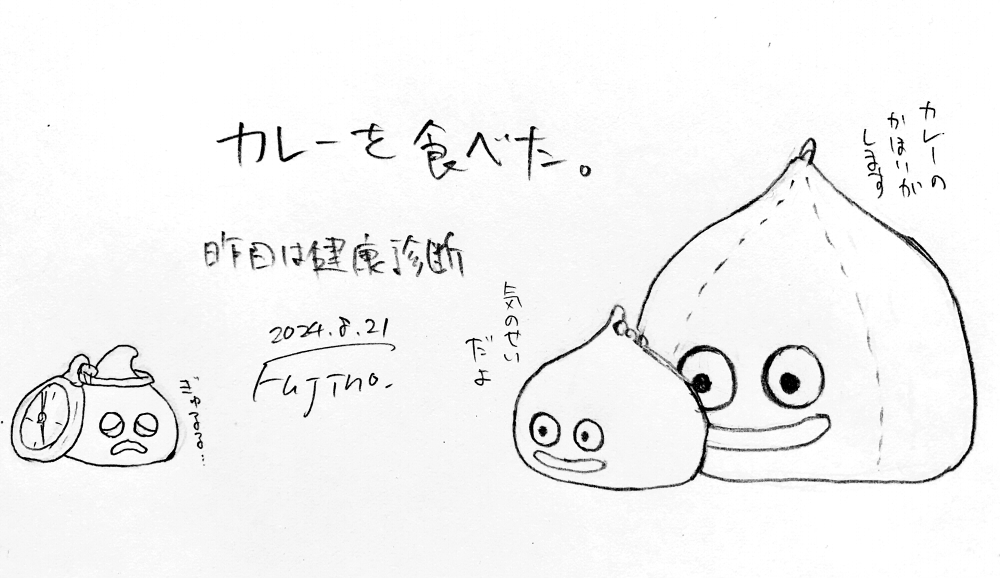 カレーを食べた。
昨日は健康診断
2024.8.21
Fujino.
カレーの
かほりが
します
気のせい
だよ
ぎゅるるる…